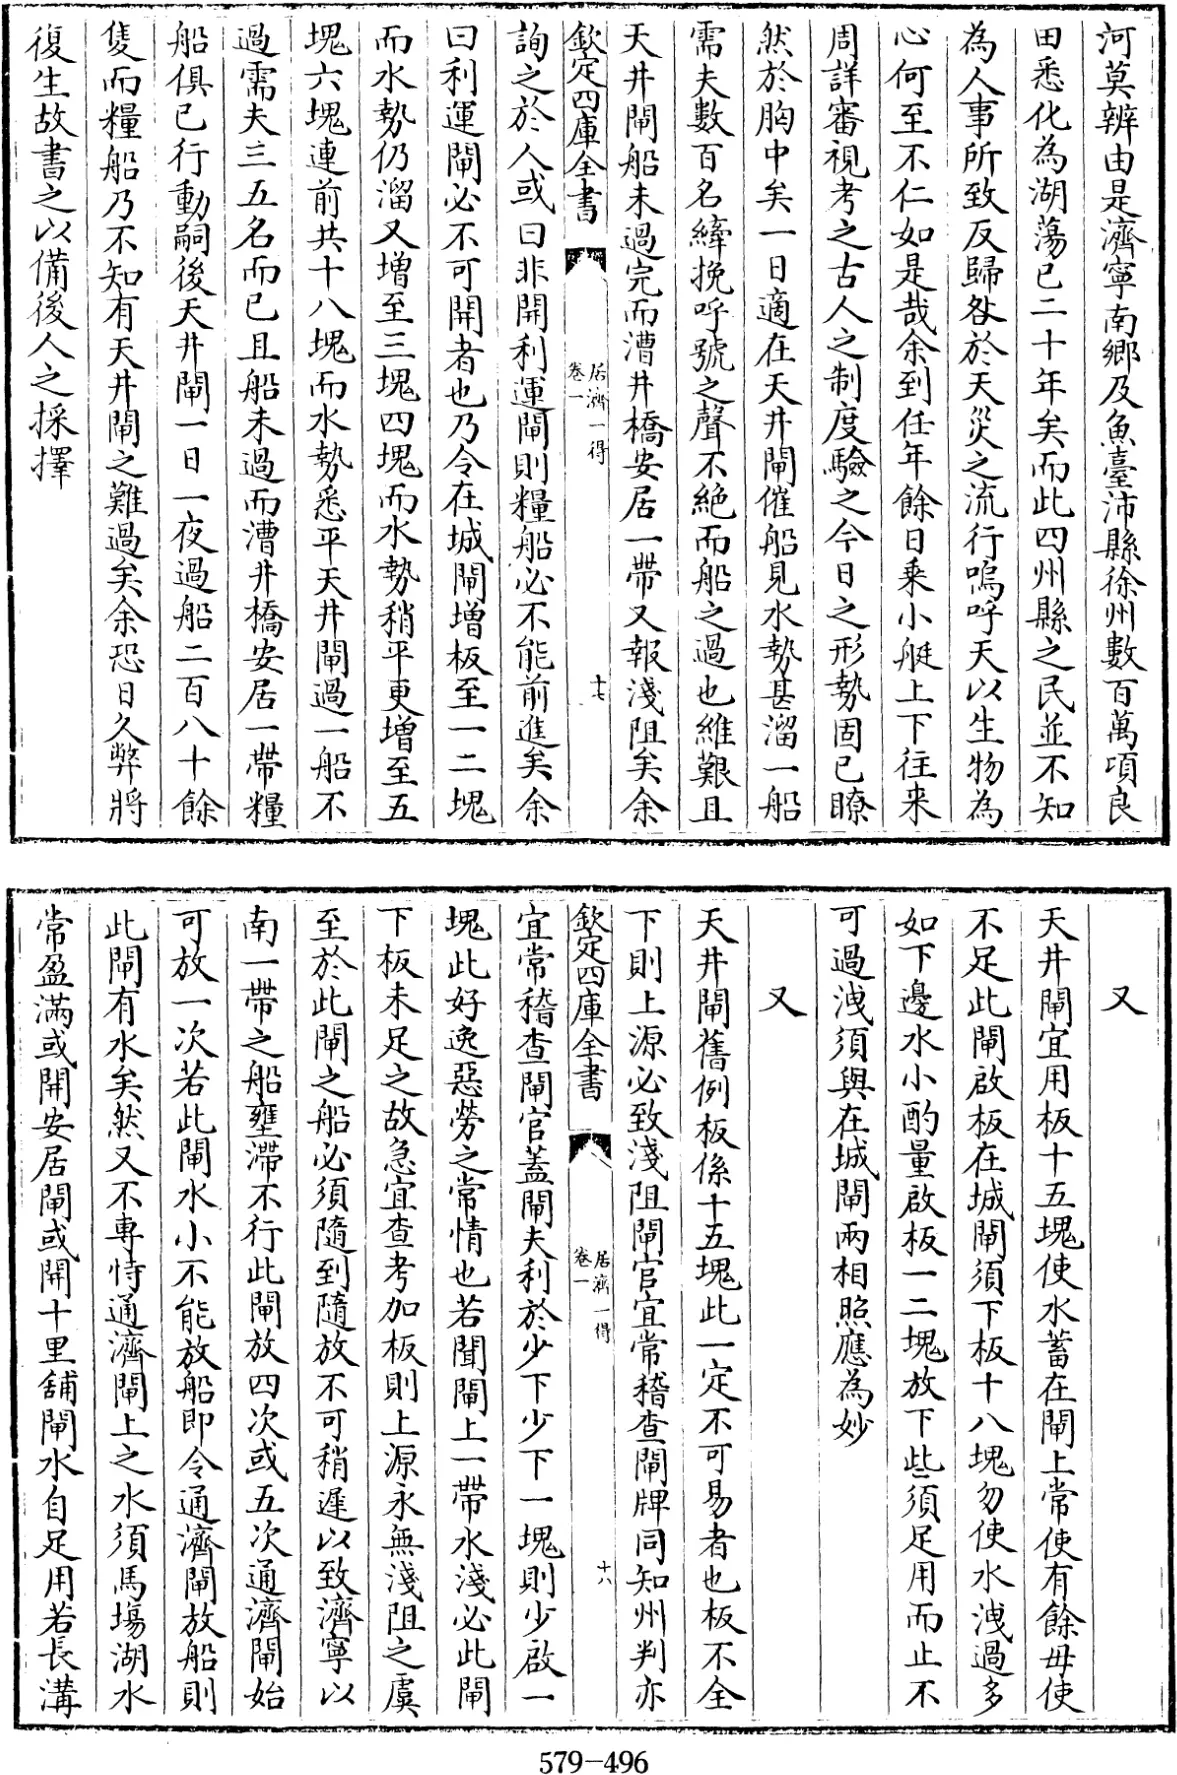 河莫辨由是濟寧南鄉及魚臺沛縣徐州數百萬頃良
田悉化為湖蕩已二十年矣而此四州縣之民並不知
為人事所致反歸咎於天災之流行嗚呼天以生物為
心何至不仁如是哉余到任年餘日乘小艇上下往来
周詳審視考之古人之制度驗之今日之形勢固已瞭
然於胸中矣一日適在天井閘催船見水勢甚溜一船
需夫數百名縴挽呼號之聲不絶而船之過也維艱且
天井閘船未過完而漕井橋安居一帶又報淺阻矣余
欽定四庫全書
居濟一得
卷一
十七
詢之於人或曰非開利運閘則糧船必不能前進矣余
曰利運閘必不可開者也乃令在城閘增板至一二塊
而水勢仍溜又增至三塊四塊而水勢稍平更增至五
塊六塊連前共十八塊而水勢悉平天井閘過一船不
過需夫三五名而已且船未過而漕井橋安居一帶糧
船俱已行動嗣後天井閘一日一夜過船二百八十餘
隻而糧船乃不知有天井閘之難過矣余恐日久弊將
復生故書之以備後人之採擇
又
天井閘宜用板十五塊使水蓄在閘上常使有餘毋使
不足此閘啟板在城閘須下板十八塊勿使水洩過多
如下邊水小酌量啟板一二塊放下些須足用而止不
可過洩須與在城閘兩相照應為妙
又
天井閘舊例板係十五塊此一定不可易者也板不全
下則上源必致淺阻閘官宜常稽查閘牌同知州判亦
欽定四庫全書
居濟一得
卷一
十八
宜常稽查閘官蓋閘夫利於少下少下一塊則少啟一
塊此好逸惡勞之常情也若聞閘上一帶水淺必此閘
下板未足之故急宜查考加板則上源永無淺阻之虞
至於此閘之船必須隨到隨放不可稍遲以致濟寧以
南一帶之船壅滯不行此閘放四次或五次通濟閘始
可放一次若此閘水小不能放船即令通濟閘放船則
此閘有水矣然又不專恃通濟閘上之水須馬塲湖水
常盈滿或開安居閘或開十里舖閘水自足用若長溝
579-496